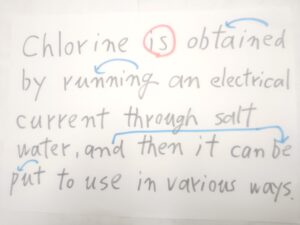 Chlorine is obtained
by running an electrical
current through salt
water, and then it can be
put to use in various ways.